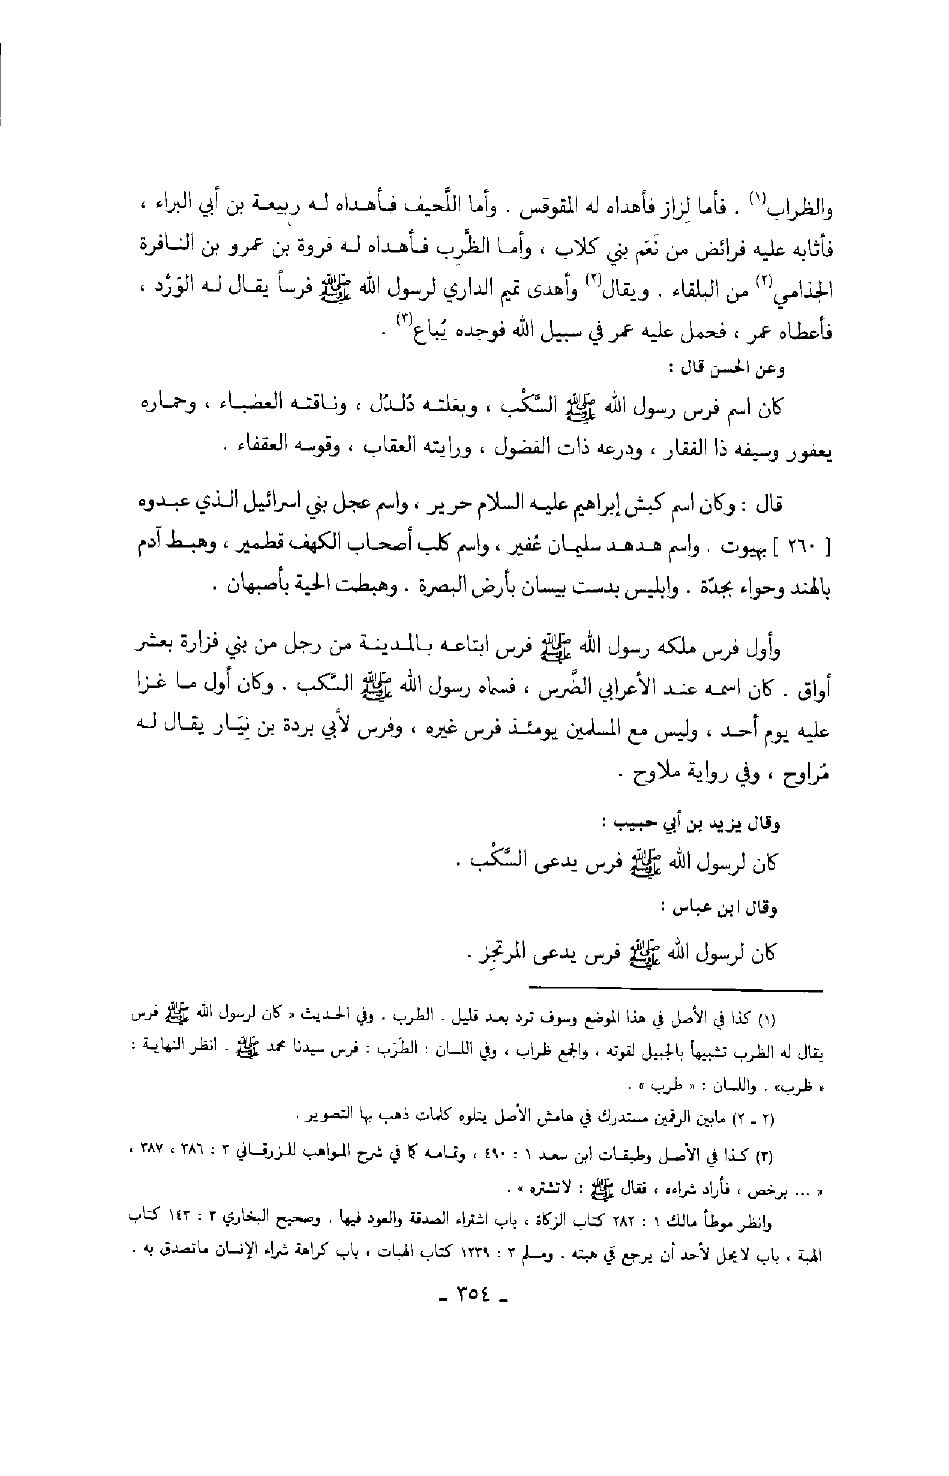 والظراب(١) . فأما لِزاز فأهداه له المقوقس . وأما اللَّحيف فأهداه له ربيعة بن أبي البراء ،
فأثابه عليه فرائض من نَعَم بني كلاب ، وأما الظَّرِب فأهداه له فروة بن عمرو بن النافرة
الجذامي(٢) من البلقاء . ويقال(٢) وأهدى تميم الداري لرسول الله ﷺ فرساً يقال له الوَرْد ،
فأعطاه عمر ، فحمل عليه عمر في سبيل الله فوجده يُباع(٣) .
وعن الحسن قال :
كان اسم فرس رسول الله ﷺ السَّكْب ، وبغلته دُلدُل ، وناقته العضباء ، وحماره
يعفور وسيفه ذا الفقار ، ودرعه ذات الفضول ، ورايته العقاب ، وقوسه العقفاء .
قال : وكان اسم كبش إبراهيم عليه السلام حرير ، واسم عجل بني اسرائيل الذي عبدوه
[ ٢٦٠ ] بهموت . واسم هدهد سليمان عُفير ، واسم كلب أصحاب الكهف قطمير ، وهبط آدم
بالهند وحواء بجدّة . وابليس بدست بيسان بأرض البصرة . وهبطت الحية بأصبهان .
وأول فرس ملكه رسول الله ﷺ فرس ابتاعه بالمدينة من رجل من بني فزارة بعشر
أواق . كان اسمه عند الأعرابي الضَّرس ، فسماه رسول الله ﷺ السَّكب . وكان أول ما غزا
عليه يوم أحد ، وليس مع المسلمين يومئذ فرس غيره ، وفرس لأبي بردة بن نِيَار يقال له
مُراوح ، وفي رواية ملاوح .
وقال يزيد بن أبي حبيب :
كان لرسول الله ﷺ فرس يدعى السَّكْب .
وقال ابن عباس :
كان لرسول الله ﷺ فرس يدعى المرتجِز .
(١) كذا في الأصل في هذا الموضع وسوف ترد بعد قليل . الطرب . وفي الحديث « كان لرسول الله ﷺ فرس
يقال له الظرب تشبيهاً بالجبيل لقوته ، والجمع ظراب ، وفي اللسان : الطَرِب : فرس سيدنا محمد ﷺ . انظر النهاية :
« ظرب» . واللسان : « طرب » .
(٢ ـ ٢) مابين الرقمين مستدرك في هامش الأصل يتلوه كلمات ذهب بها التصوير .
(٣) كذا في الأصل وطبقات ابن سعد ١ : ٤٩٠ ، وتمامه كما في شرح المواهب للزرقاني ٣ : ٣٨٦ ، ٣٨٧ ،
« ... برخص ، فأراد شراءه ، فقال ﷺ : لاتشتره » .
وانظر موطأ مالك ١ : ٢٨٢ كتاب الزكاة ، باب اشتراء الصدقة والعود فيها . وصحيح البخاري ٣ : ١٤٣ كتاب
الهبة ، باب لايحل لأحد أن يرجع في هبته . ومسلم ٣ : ١٢٣٩ كتاب الهبات ، باب كراهة شراء الإنسان ماتصدق به .
ـ ٣٥٤ ـ